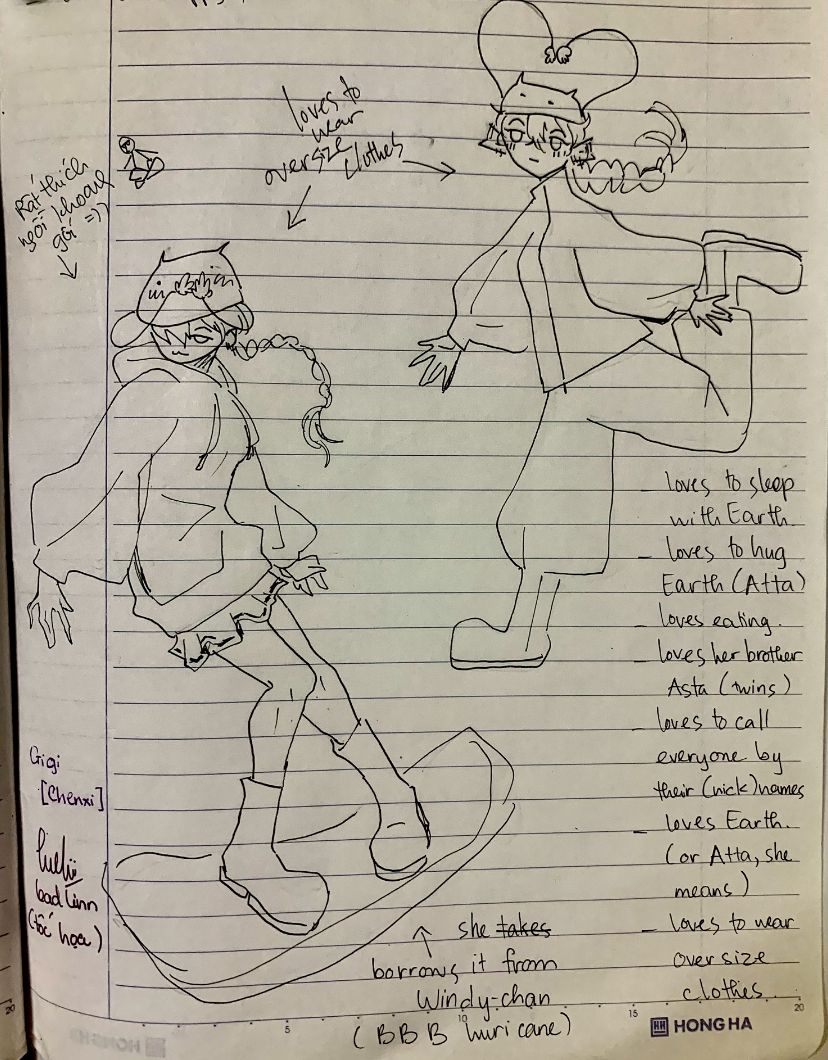 loves to
wear
oversize
clothes
Rất thích
ngồi khoanh
gối =))
_ loves to sleep
with Earth.
_ loves to hug
Earth (Atta)
_ loves eating.
_ loves her brother
Asta (twins)
_ loves to call
everyone by
their (nick)names
_ loves Earth.
(or Atta, she
means)
_ loves to wear
oversize
clothes.
Gigi
[Chenxi]
bad linn
(tốc họa)
she takes
borrows it from
Windy-chan
(BBB huricane)
5
10
15
20
HH HONG HA
20